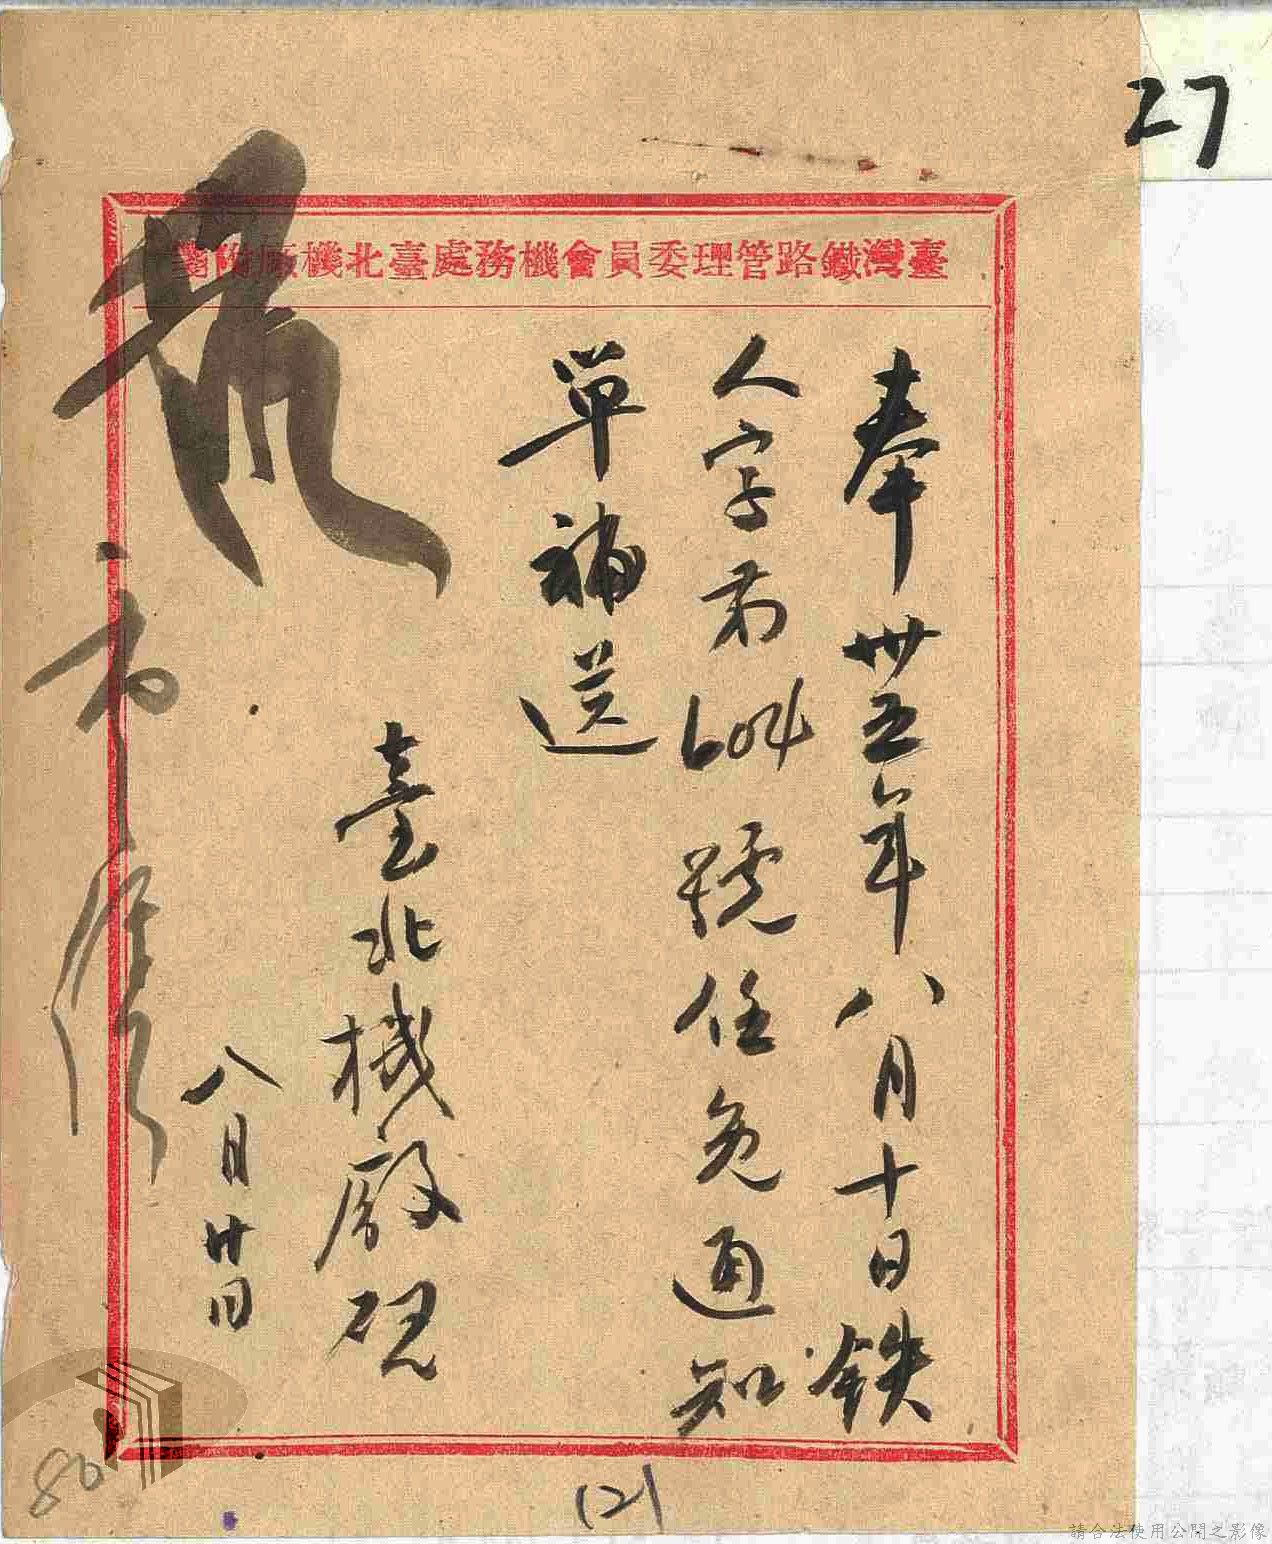 27
臺灣鐵路管理委員會機務處臺北機廠附箋
奉卅五年八月十日鉄
人字第604號任免通知
單補送
臺北機廠
八月廿日
121
80
請合法使用公開之影像